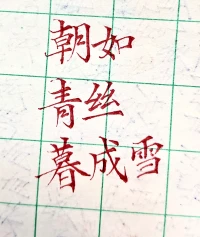 朝如
青丝
暮成雪